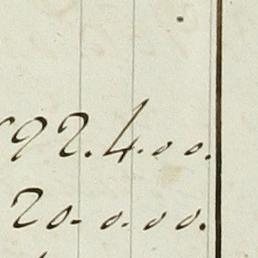 92.4.00.
20.0.00.